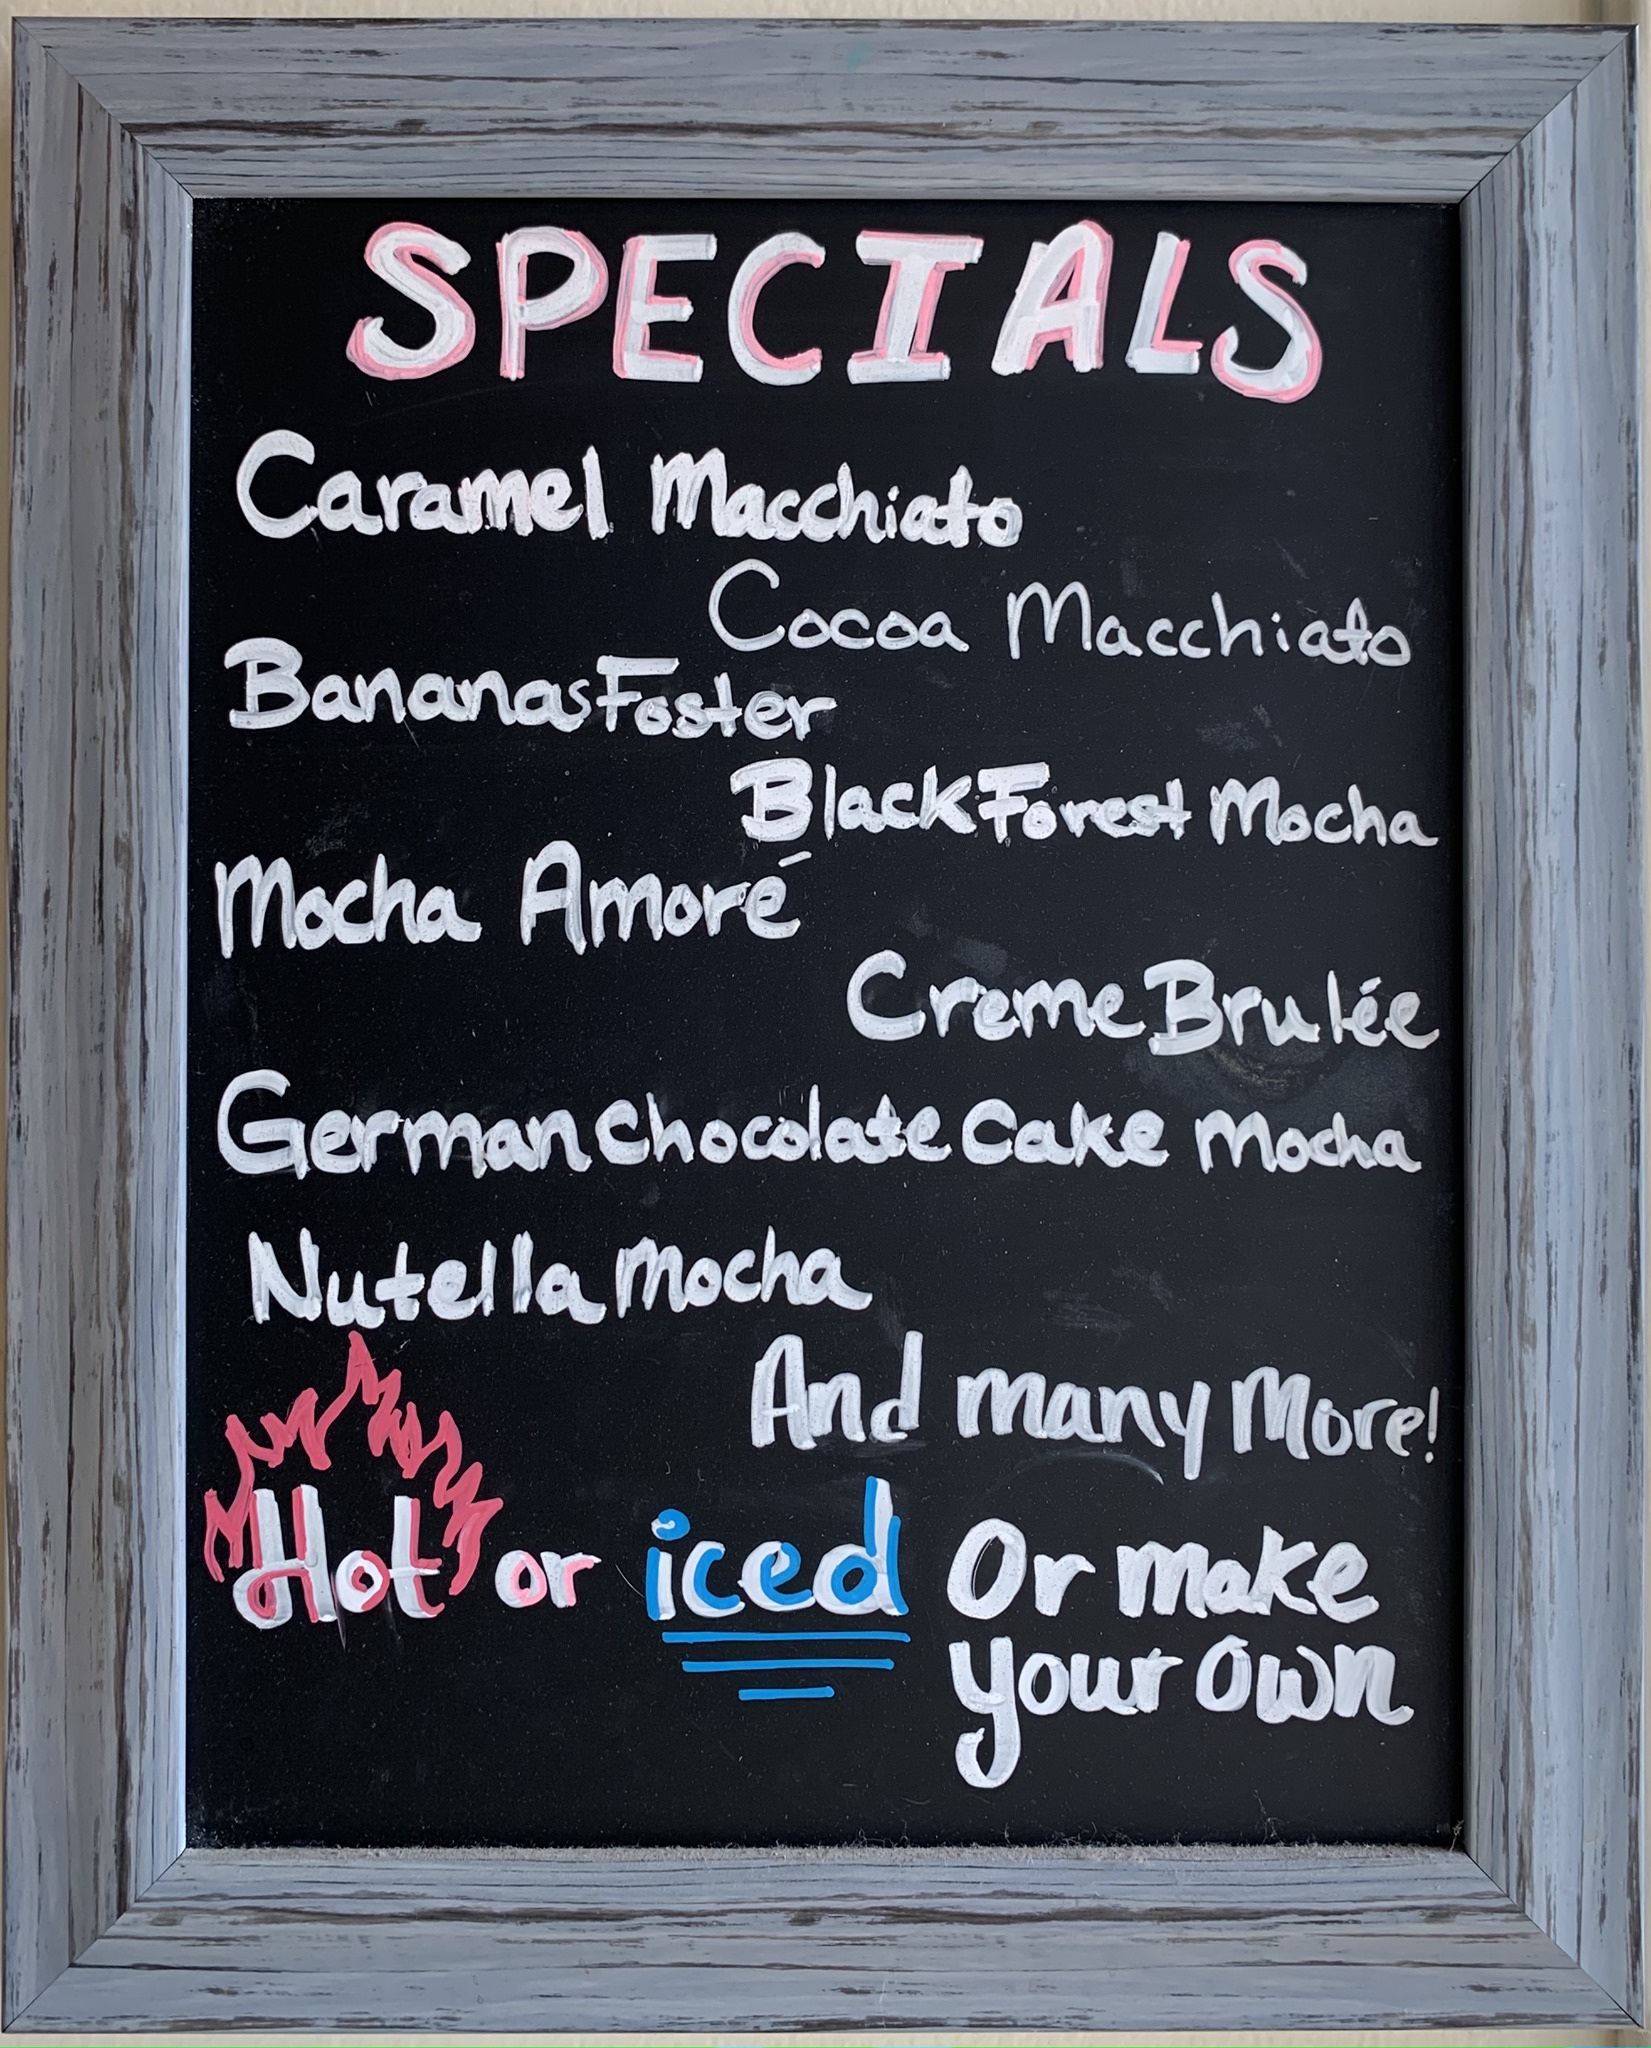 SPECIALS
Caramel Macchiato
Cocoa Macchiato
Bananas Foster
Black Forest Mocha
Mocha Amoré
Creme Brulée
German Chocolate Cake Mocha
Nutella Mocha
And many More!
Hot or iced Or make
your own